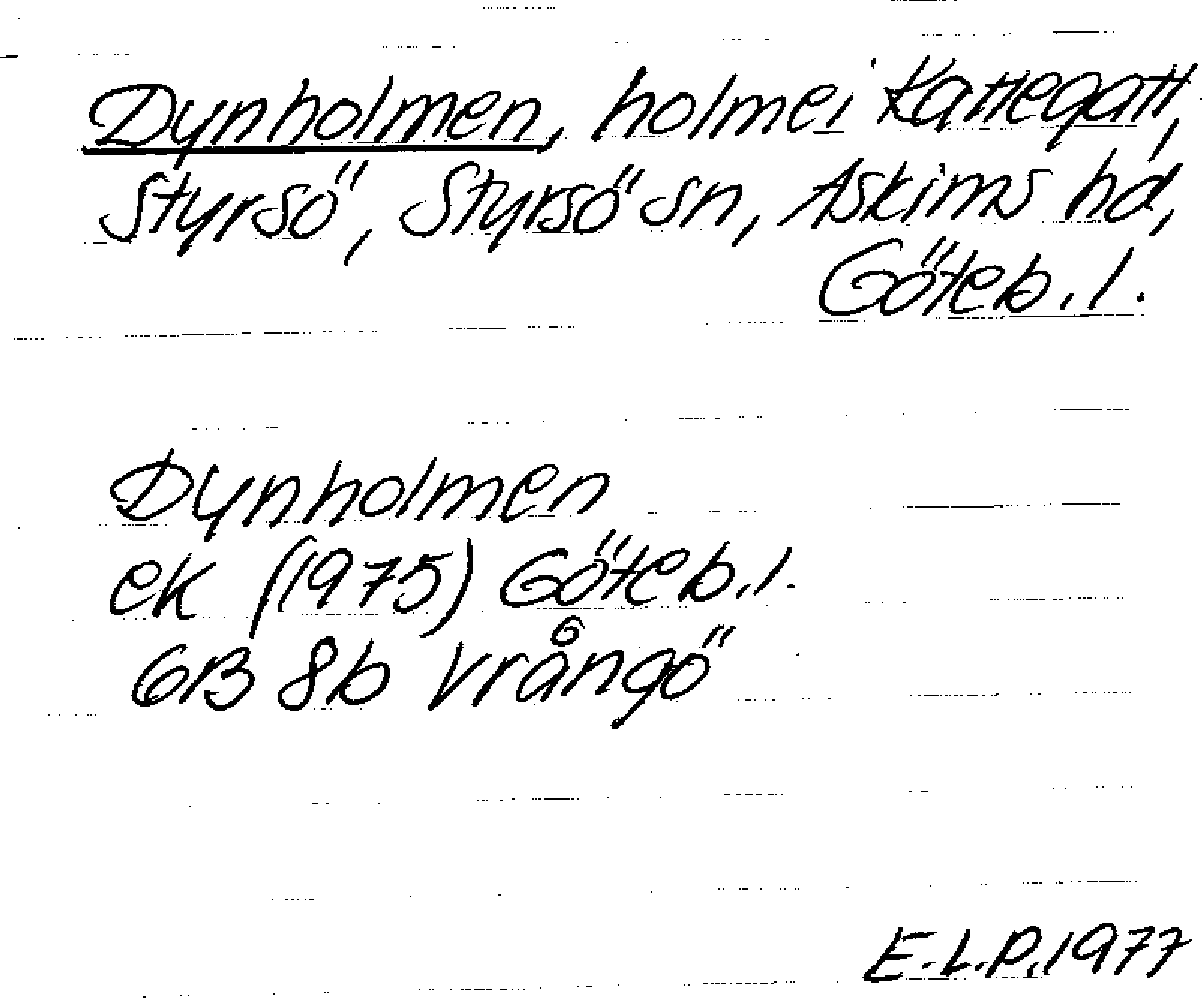 Dynholmen, holme i Kattegatt,
Styrsö, Styrsö sn, Askims hd,
Göteb. l.
Dynholmen
ek (1975) Göteb. l.
6B 8b Vrångö
E.L.P. 1977